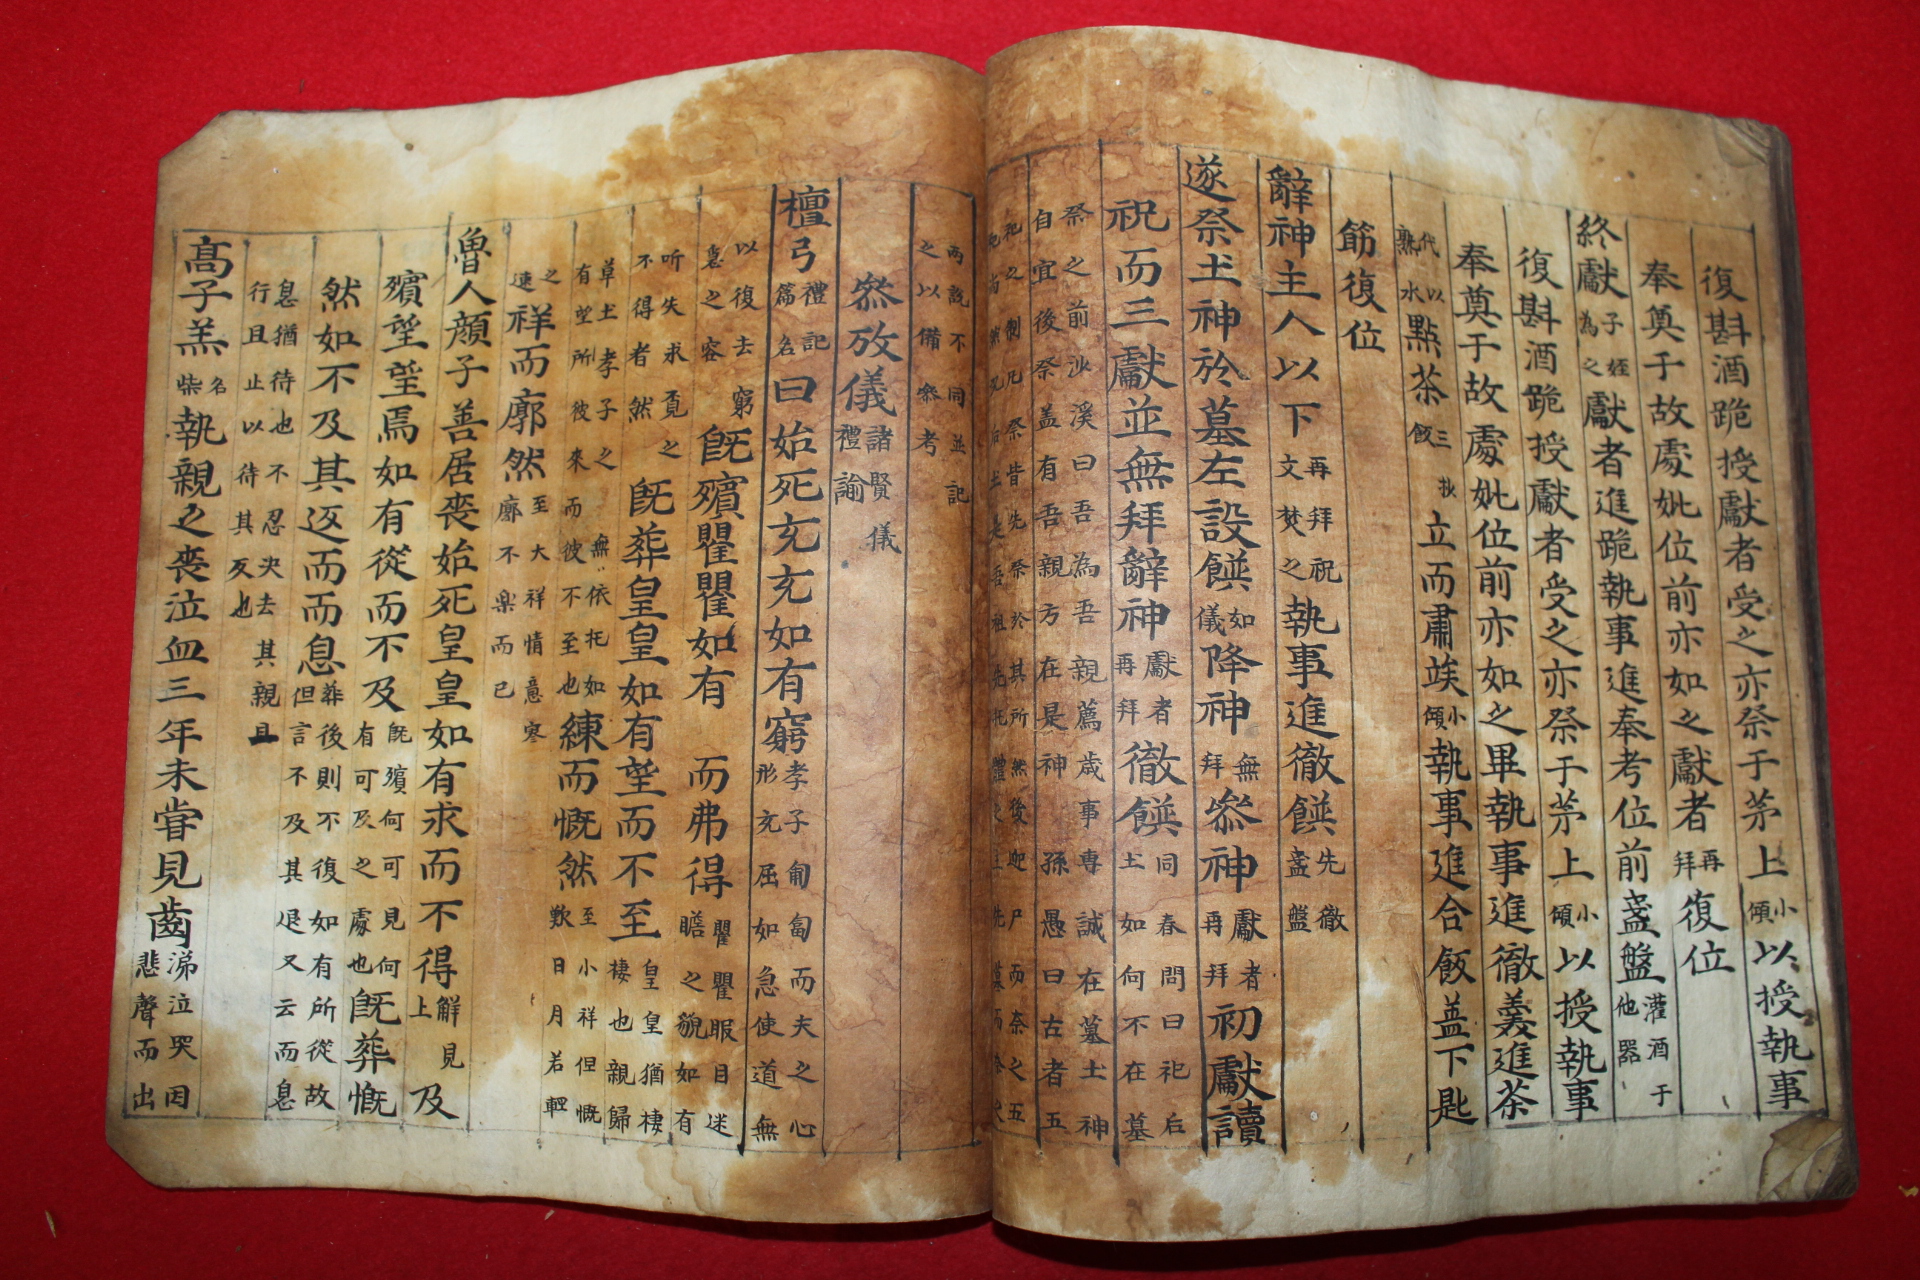 復斟酒跪授獻者受之亦祭于茅上小傾以授執事
奉奠于故處妣位前亦如之獻者再拜復位
終獻子姪為之獻者進跪執事進奉考位前盞盤灌酒于他器
復斟酒跪授獻者受之亦祭于茅上小傾以授執事
奉奠于故處妣位前亦如之畢執事進徹羹進茶
代以熟水點茶三飯抄立而肅竢小傾執事進合飯盖下匙
筯復位
辭神主人以下再拜焚祝文之執事進徹饌先徹盞盤
遂祭土神於墓左設饌如儀降神無拜叅神獻者再拜初獻讀
祝而三獻並無拜辭神獻者再拜徹饌同春問曰祀后土如何不在墓
祭之前沙溪曰吾為吾親薦歲事專誠在墓土神
自宜後祭盖有吾親方在是神孫愚曰古者五
祀之制凡祭皆先祭於其所然後迎尸而祭之五
兩說不同並記
之以備叅考
叅攷儀諸賢儀禮論
檀弓禮記篇名曰始死充充如有窮孝子匍匐而夫之心形充屈如急使道無
以復去窮急之容旣殯瞿瞿如有而弗得瞿瞿眼目速瞻之貌如有
所失求覔之不得者然旣葬皇皇如有望而不至皇皇猶棲棲也親歸
草土孝子之無依托如有望所彼來而彼不至也練而慨然至小祥但慨歎日月若輕
之速祥而廓然至大祥情意寥廓不樂而已
魯人顔子善居喪始死皇皇如有求而不得鮮見上及
殯望望焉如有從而不及旣殯何可見何有可及之處也旣葬慨
然如不及其返而而息葬後則不復如有所從故但言不及其退又云而息
息猶待也不忍决去其親且行且止以待其反也
高子羔名柴執親之喪泣血三年未甞見齒涕泣哭因悲聲而出